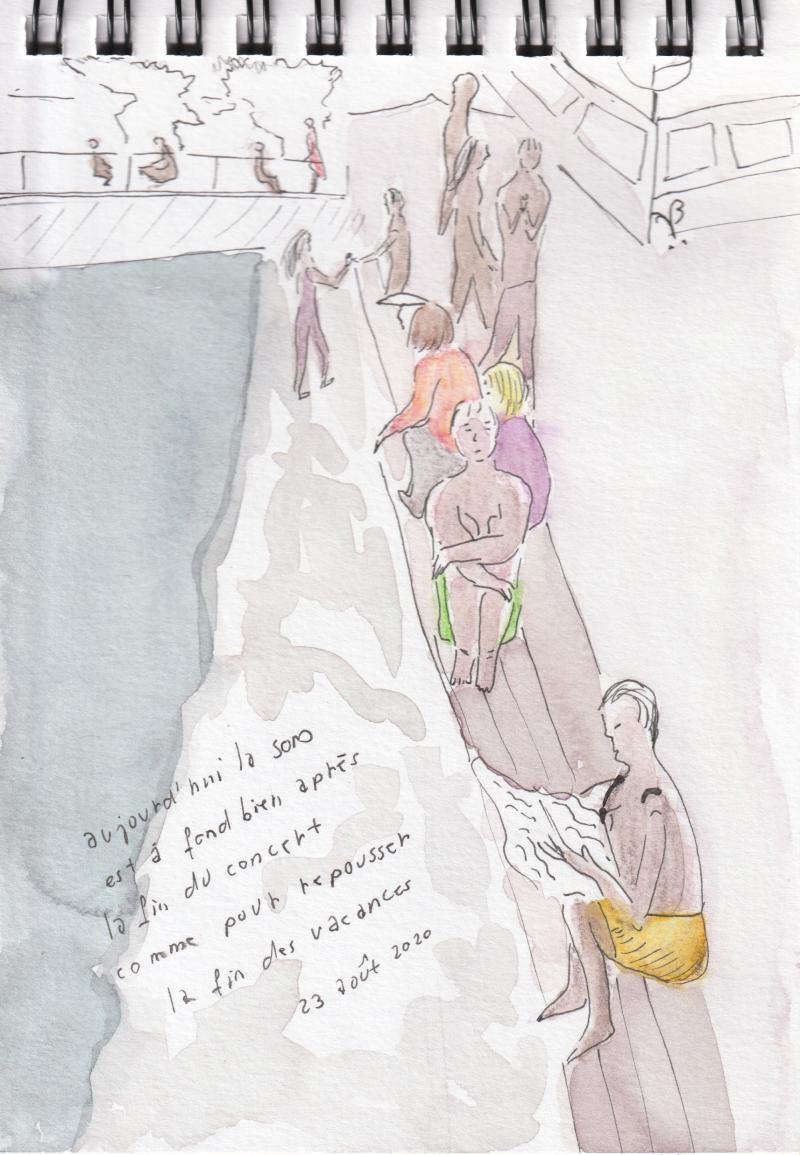 aujourd'hui la sono
est à fond bien après
la fin du concert
comme pour repousser
la fin des vacances
23 août 2020